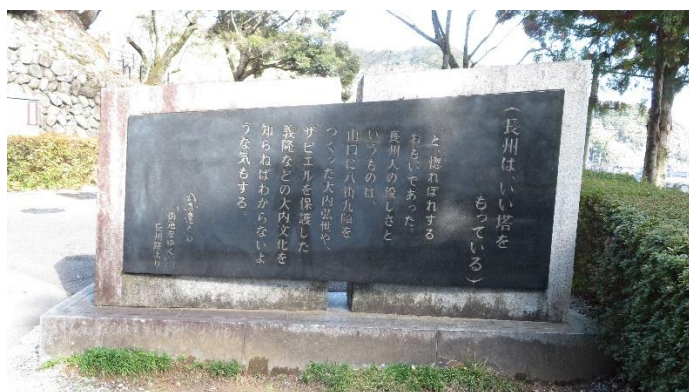 （長州は、いい塔を
もっている）
と、惚れぼれする
おもいであった。
長州人の優しさと
いうものは、
山口に八街九陌を
つくった大内弘世や、
ザビエルを保護した
義隆などの大内文化を
知らねばわからないよ
うな気もする。
司馬遼太郎
街道をゆく
長州路より